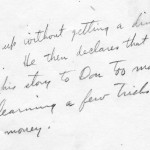 up without getting a
. He then declares that
his story to Don
learning a few tricks
money.